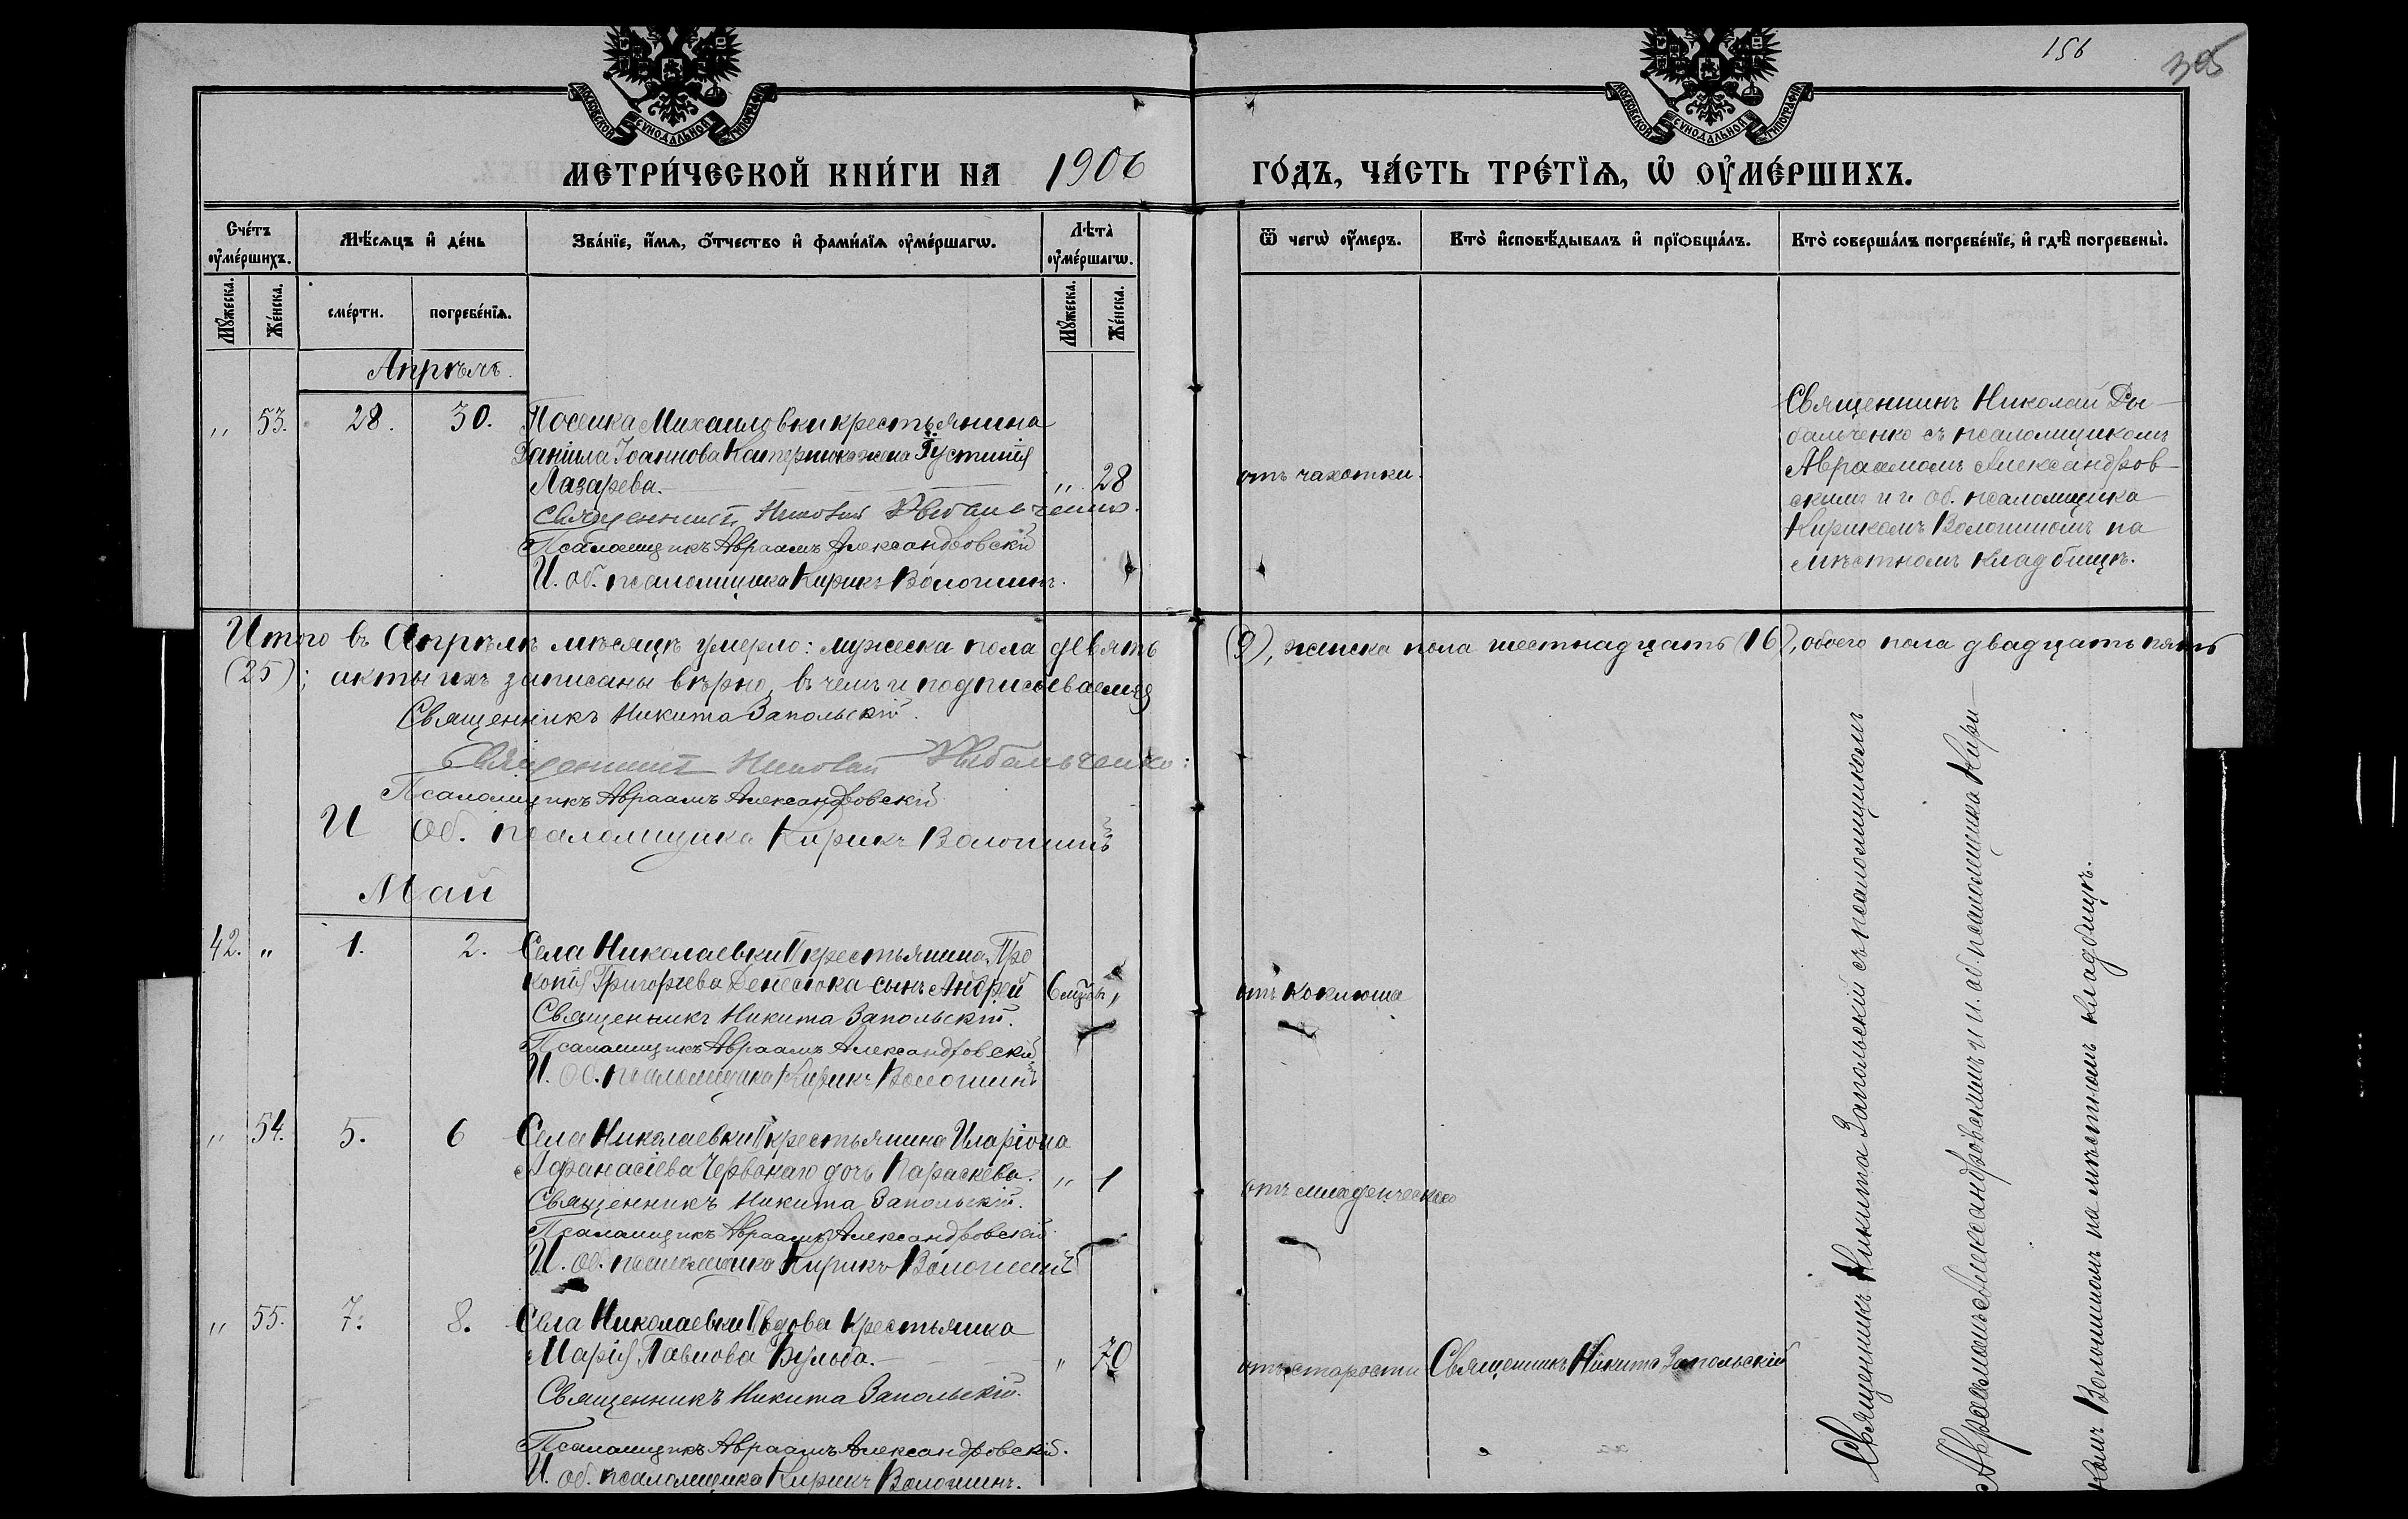 156
305
МОСКОВСКОЙ СѴНОДАЛЬНОЙ ТИПОГРАФІИ
МОСКОВСКОЙ СѴНОДАЛЬНОЙ ТИПОГРАФІИ
МЕТРИ́ЧЕСКОЙ КНИ́ГИ НА 1906 ГО́ДЪ, ЧА́СТЬ ТРЕ́ТЇѦ, Ѡ҆ ОУ҆МЕ́РШИХЪ.
Сче́тъ оу҆ме́ршихъ.
Мꙋ́жеска.
Же́нска.
Мѣ́сѧцъ и҆ де́нь
сме́рти.
погребе́нїѧ.
Зва́нїе, и҆́мѧ, ѻ҆́тчество и҆ фами́лїѧ оу҆ме́ршагѡ.
Лѣ́та оу҆ме́ршагѡ.
Мꙋ́жеска.
Же́нска.
Ѿ чегѡ̀ оу҆́меръ.
Кто̀ и҆сповѣ́дывалъ и҆ прїѻбща́лъ.
Кто̀ соверша́лъ погребе́нїе, и҆ гдѣ̀ погребены̀.
Апрѣль.
" 53. 28. 30. Поселка Михаиловки крестьянина
Даніила Іоаннова жена Іустинія
Лазарева. " 28 отъ чахотки.
Священникъ Николай Дыбальченко.
Псаломщикъ Авраамъ Александровскій
И. об. псаломщика Кирикъ Волошинъ.
Священникъ Николай Ды-
бальченко съ псаломщикомъ
Авраамомъ Александров-
скимъ и и об. псаломщика
Кирикомъ Волошиномъ на
мѣстномъ кладбищѣ.
Итого въ Апрѣлѣ мѣсяцѣ умерло: мужеска пола девять (9), женска пола шестнадцать (16), обоего пола двадцать пять
(25); акты ихъ записаны вѣрно, въ чемъ и подписываемся
Священникъ Никита Запольскій.
Священникъ Николай Дыбальченко:
Псаломщикъ Авраамъ Александровскій
И об. псаломщика Кирикъ Волошинъ
Май
42. " 1. 2. Села Николаевки II крестьянина Про
копія Григорьева сынъ Андрей 6 мѣсяц. " отъ коклюша
Священникъ Никита Запольскій.
Псаломщикъ Авраамъ Александровскій
И. об. псаломщика Кирикъ Волошинъ
" 54. 5. 6 Села Николаевки II крестьянина Иларіона
Афанасіева Червонаго дочь Параскева. " 1 отъ младенческаго
Священникъ Никита Запольскій.
Псаломщикъ Авраамъ Александровскій
И. об. псаломщика Кирикъ Волошинъ
" 55. 7. 8. Села Николаевки II вдова крестьянка
Марія Павлова Бульба. " 70 отъ старости Священникъ Никита Запольскій
Священникъ Никита Запольскій.
Псаломщикъ Авраамъ Александровскій.
И. об. псаломщика Кирикъ Волошинъ.
Священникъ Никита Запольскій съ псаломщикомъ
Авраамомъ Александровскимъ и и. об. псаломщика Кири-
комъ Волошиномъ на мѣстномъ кладбищѣ.